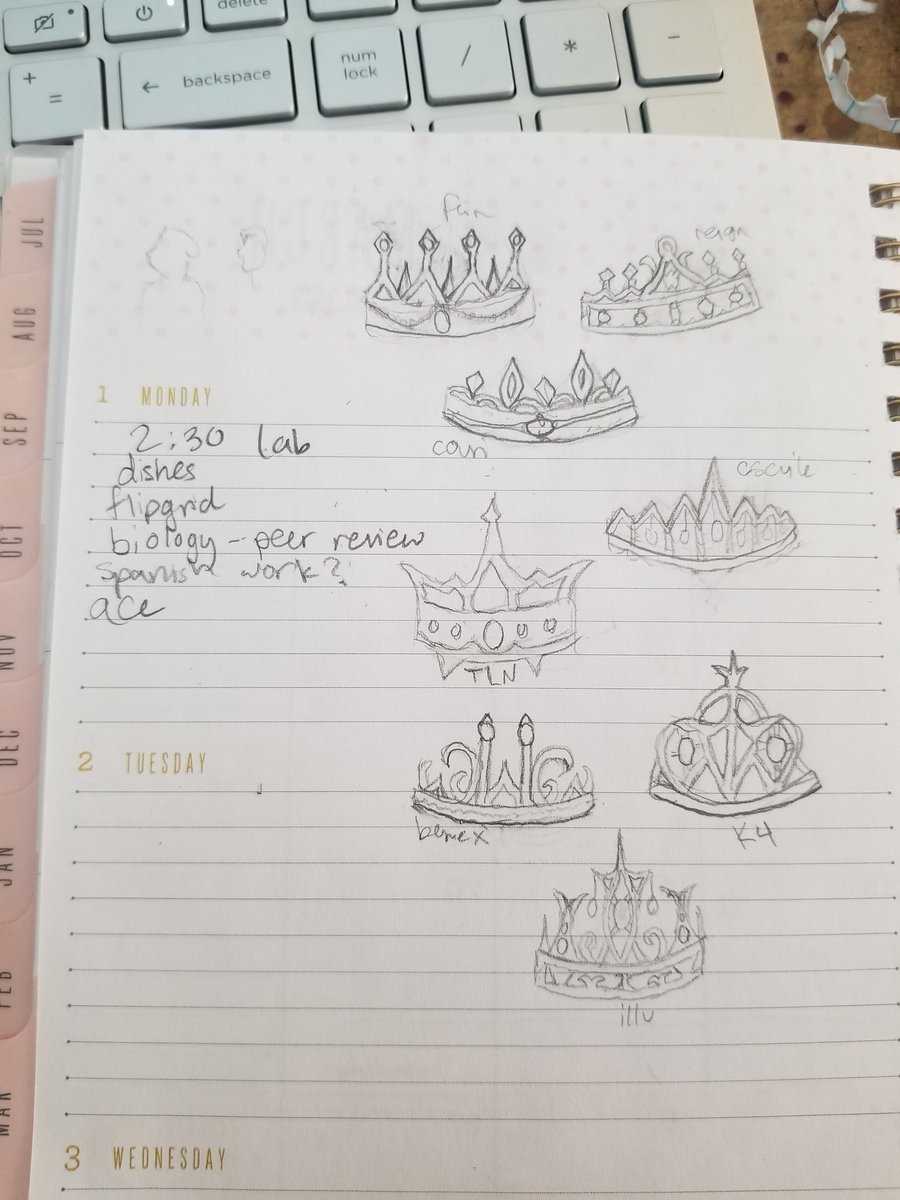 delete
+
=
← backspace
num
lock
/
*
-
JUL
AUG
SEP
OCT
NOV
DEC
JAN
FEB
MAR
reign
1 MONDAY
2:30 Lab
dishes
flipgrid
biology - peer review
Spanish work?
ace
TLN
2 TUESDAY
K4
illu
3 WEDNESDAY